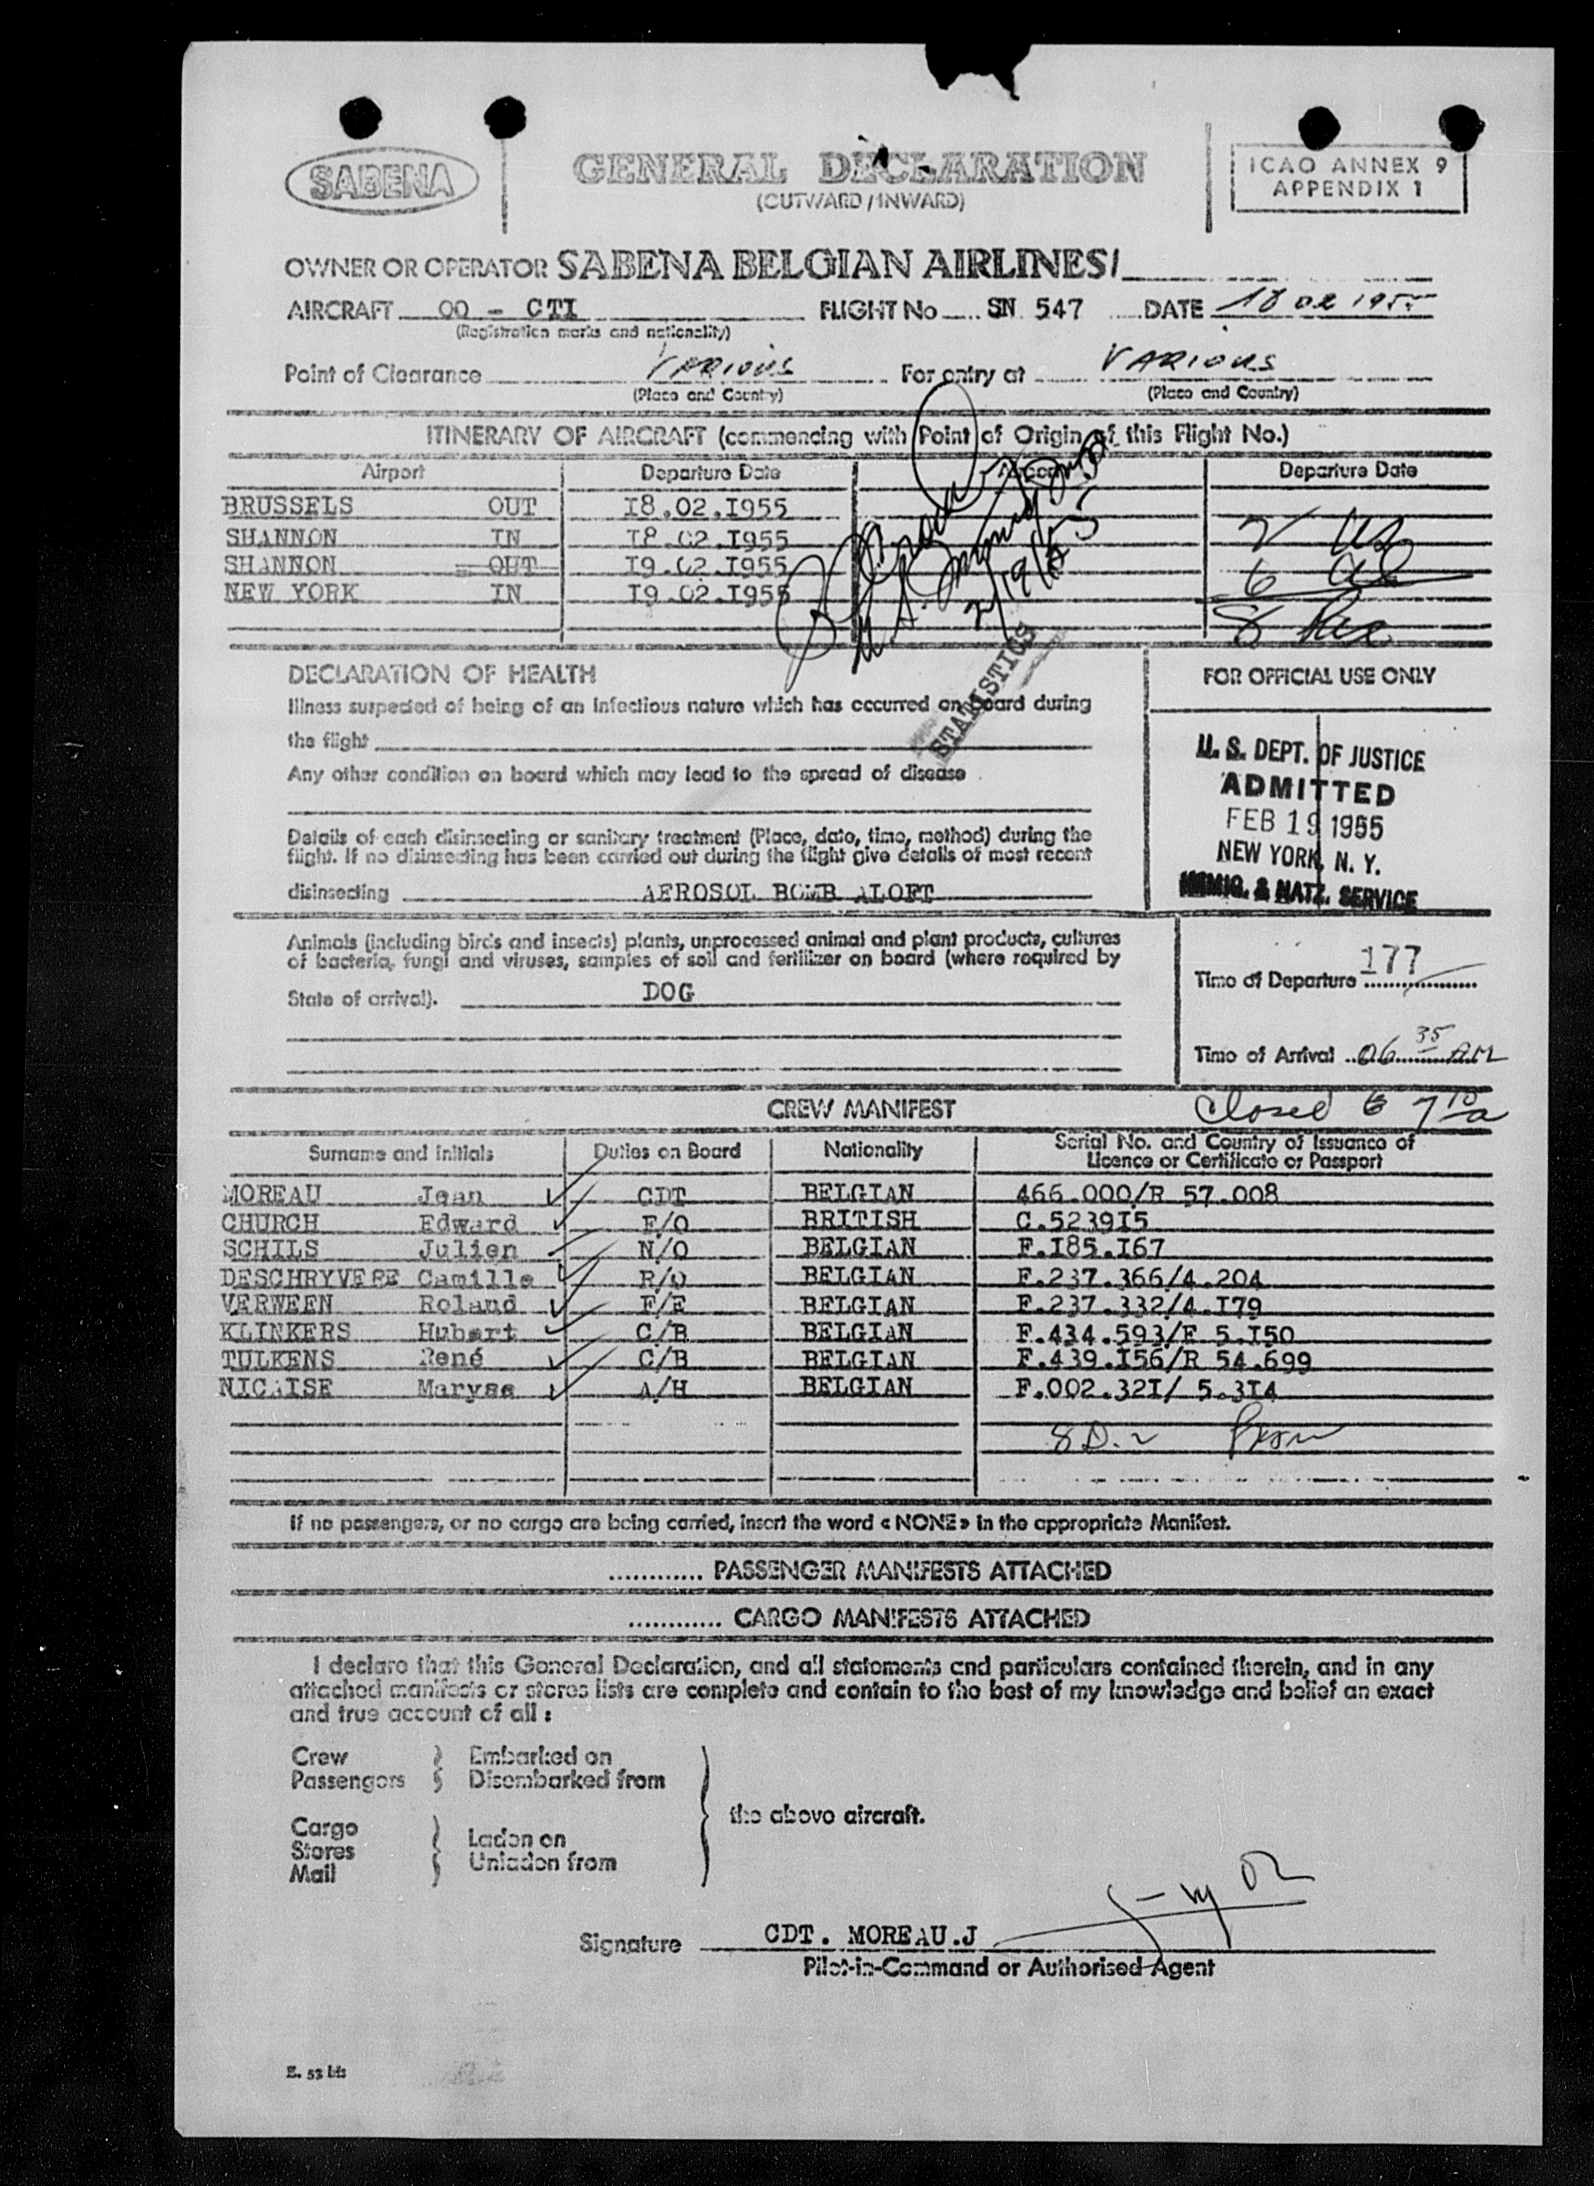 SABENA
GENERAL DECLARATION
(OUTWARD/INWARD)
ICAO ANNEX 9
APPENDIX 1
OWNER OR OPERATOR SABENA BELGIAN AIRLINES/
AIRCRAFT OO - CTI FLIGHT No SN 547 DATE 18 02 1955
(Registration marks and nationality)
Point of Clearance VARIOUS For entry at VARIOUS
(Place and Country) (Place and Country)
ITINERARY OF AIRCRAFT (commencing with Point of Origin of this Flight No.)
Airport Departure Date Airport Departure Date
BRUSSELS OUT I8.02.I955
SHANNON IN I8.02.I955 2 US
SHANNON OUT I9.02.I955 6 al
NEW YORK IN I9.02.I955
8
2/19/55
STATISTICS
DECLARATION OF HEALTH
Illness suspected of being of an infectious nature which has occurred on board during
the flight
Any other condition on board which may lead to the spread of disease
Details of each disinsecting or sanitary treatment (Place, date, time, method) during the
flight. If no disinsecting has been carried out during the flight give details of most recent
disinsecting AEROSOL BOMB ALOFT
FOR OFFICIAL USE ONLY
U. S. DEPT. OF JUSTICE
ADMITTED
FEB 19 1955
NEW YORK, N. Y.
IMMIG. & NATZ. SERVICE
Animals (including birds and insects) plants, unprocessed animal and plant products, cultures
of bacteria, fungi and viruses, samples of soil and fertilizer on board (where required by
State of arrival). DOG
Time of Departure 177
Time of Arrival 06 35 AM
CREW MANIFEST
Closed 7 10 a
Surname and initials Duties on Board Nationality Serial No. and Country of Issuance of
Licence or Certificate or Passport
MOREAU Jean CDT BELGIAN 466.000/R 57.008
CHURCH Edward F/O BRITISH C.5239I5
SCHILS Julien N/O BELGIAN F.I85.I67
DESCHRYVERE Camille R/O BELGIAN F.237.366/4.204
VERWEEN Roland F/E BELGIAN F.237.332/4.I79
KLINKERS Hubert C/B BELGIAN F.434.593/F 5.I50
TULKENS René C/B BELGIAN F.439.I56/R 54.699
NICAISE Maryse A/H BELGIAN F.002.32I/ 5.3I4
8 D.2
If no passengers, or no cargo are being carried, insert the word « NONE » in the appropriate Manifest.
............ PASSENGER MANIFESTS ATTACHED
............ CARGO MANIFESTS ATTACHED
I declare that this General Declaration, and all statements and particulars contained therein, and in any
attached manifests or stores lists are complete and contain to the best of my knowledge and belief an exact
and true account of all :
Crew Embarked on
Passengers Disembarked from
the above aircraft.
Cargo
Stores Laden on
Mail Unladen from
Signature CDT. MOREAU.J
Pilot-in-Command or Authorised Agent
E. 53 bis